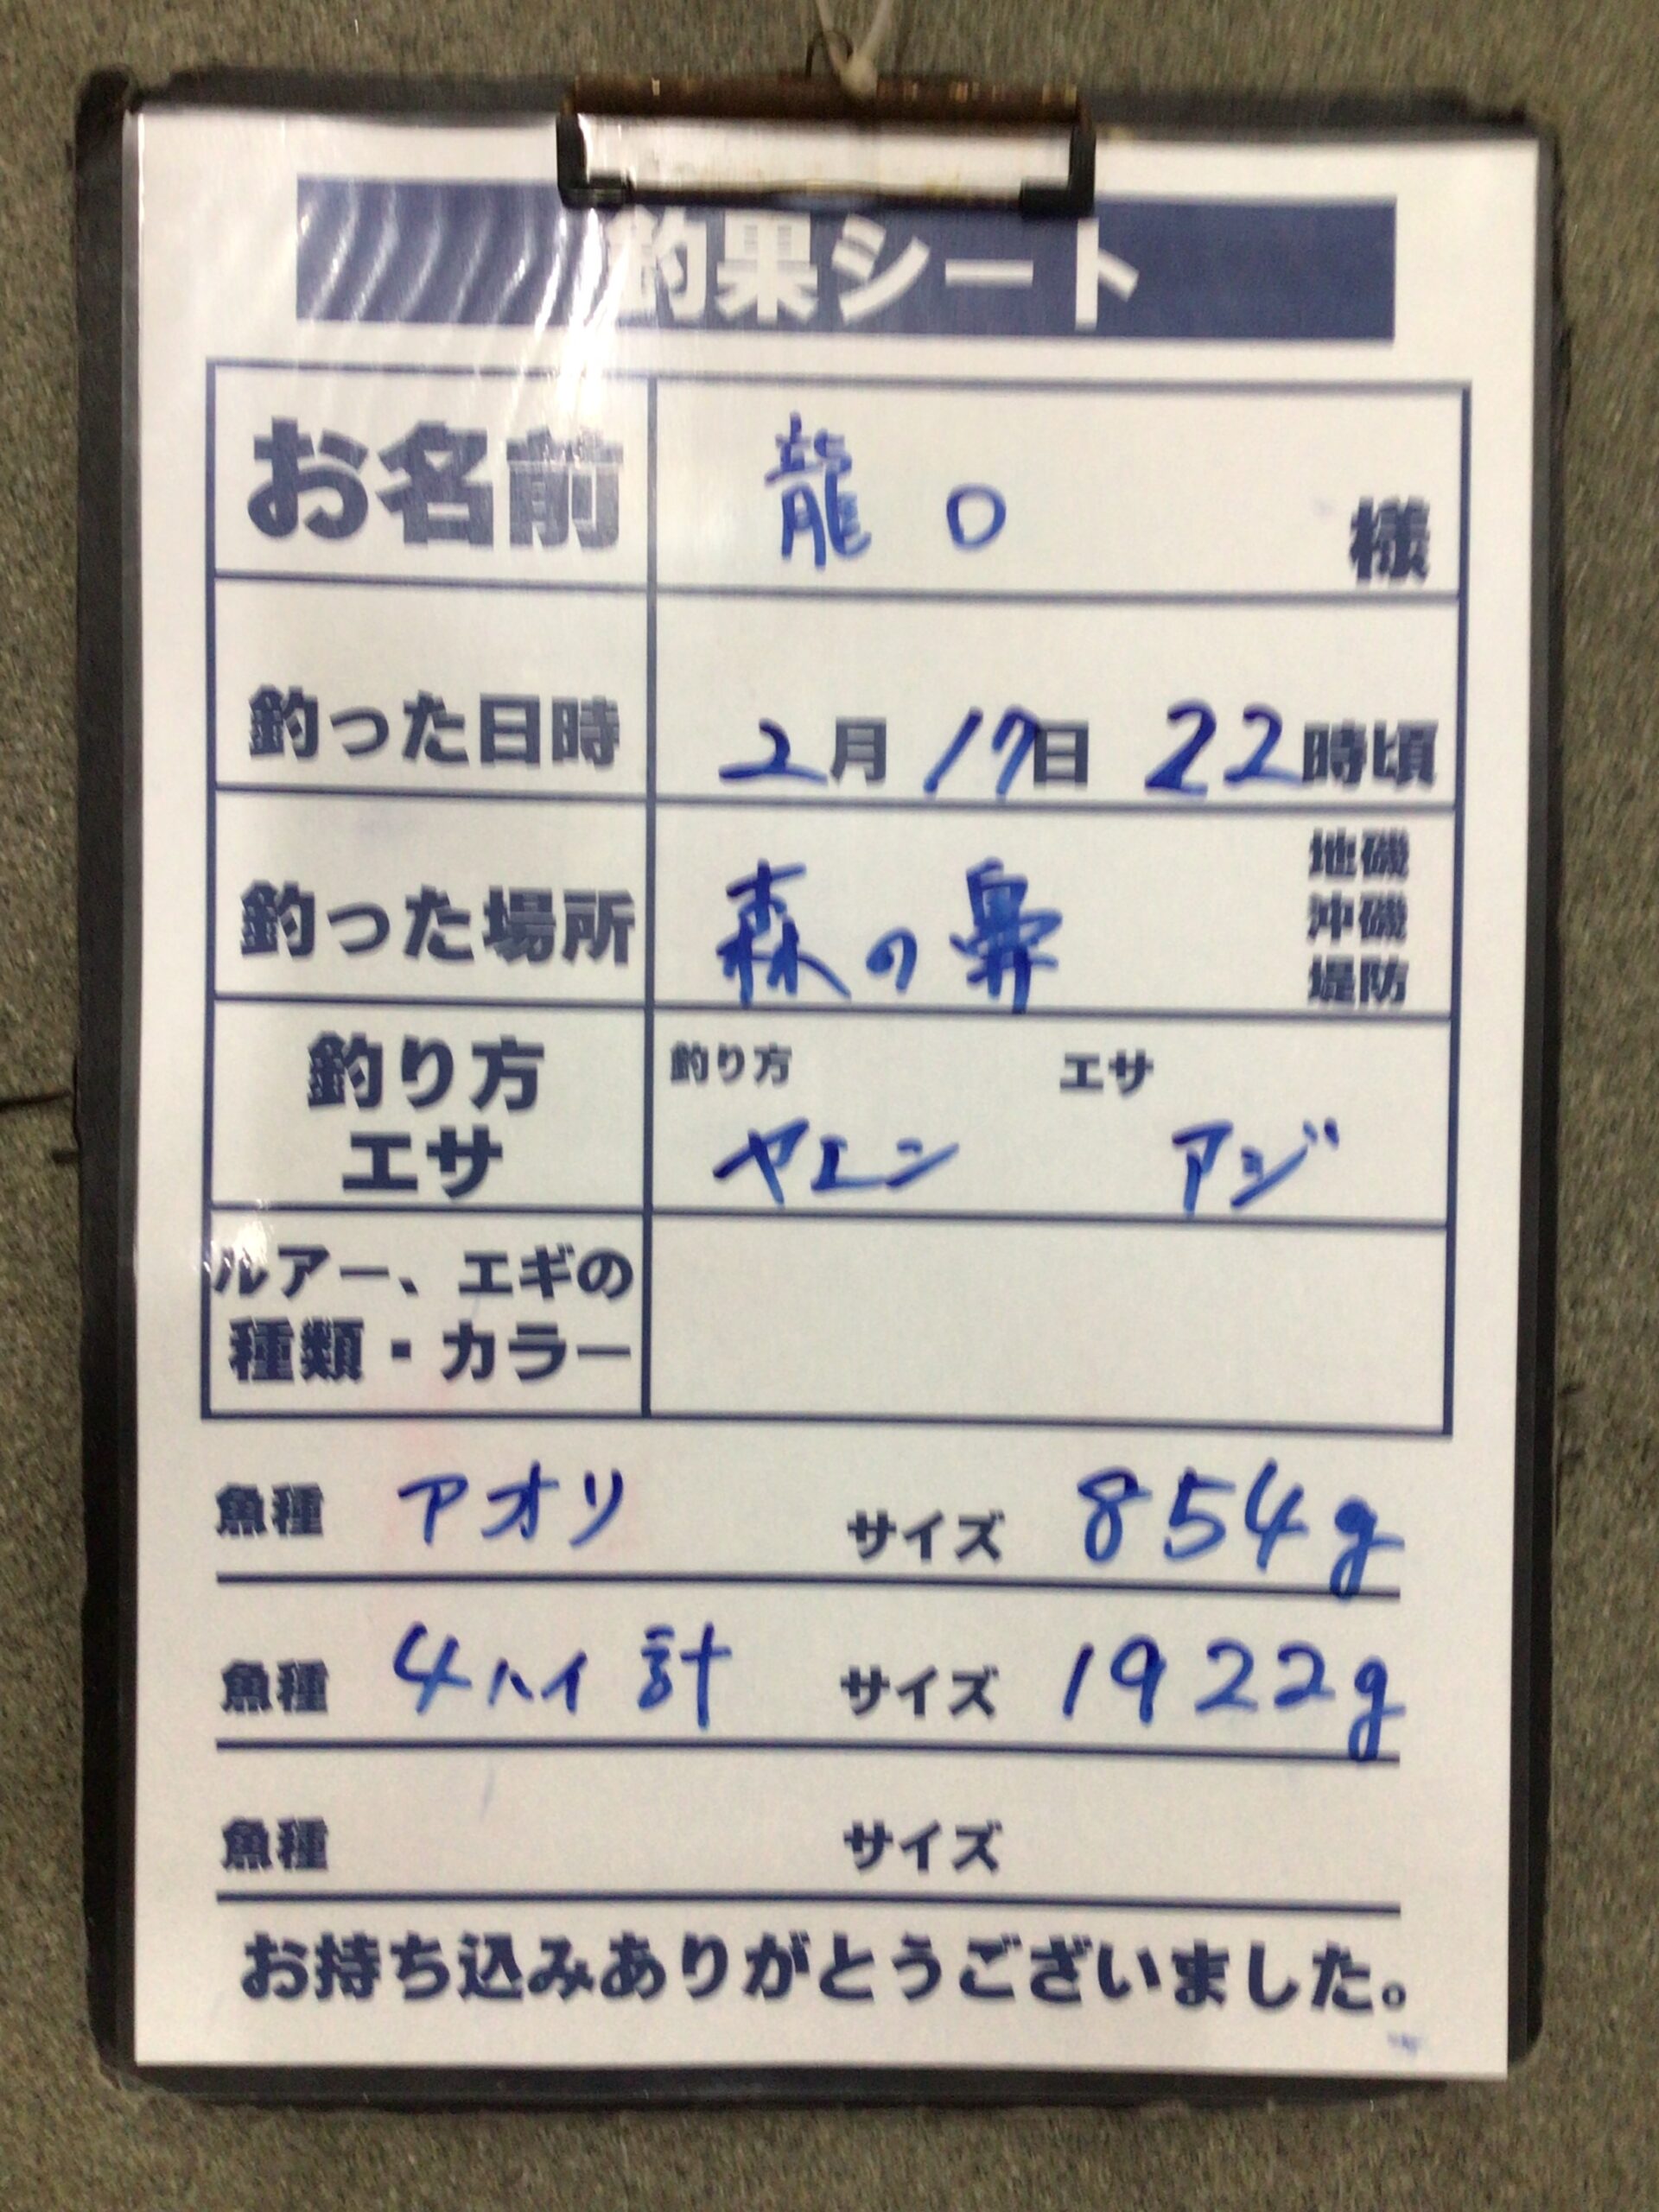 釣果シート
お名前 龍口 様
釣った日時 2月17日 22時頃
釣った場所 森の鼻 地磯
沖磯
堤防
釣り方 釣り方 エサ
エサ ヤエン アジ
ルアー、エギの
種類・カラー
魚種 アオリ サイズ 854g
魚種 4ハイ計 サイズ 1922g
魚種 サイズ
お持ち込みありがとうございました。